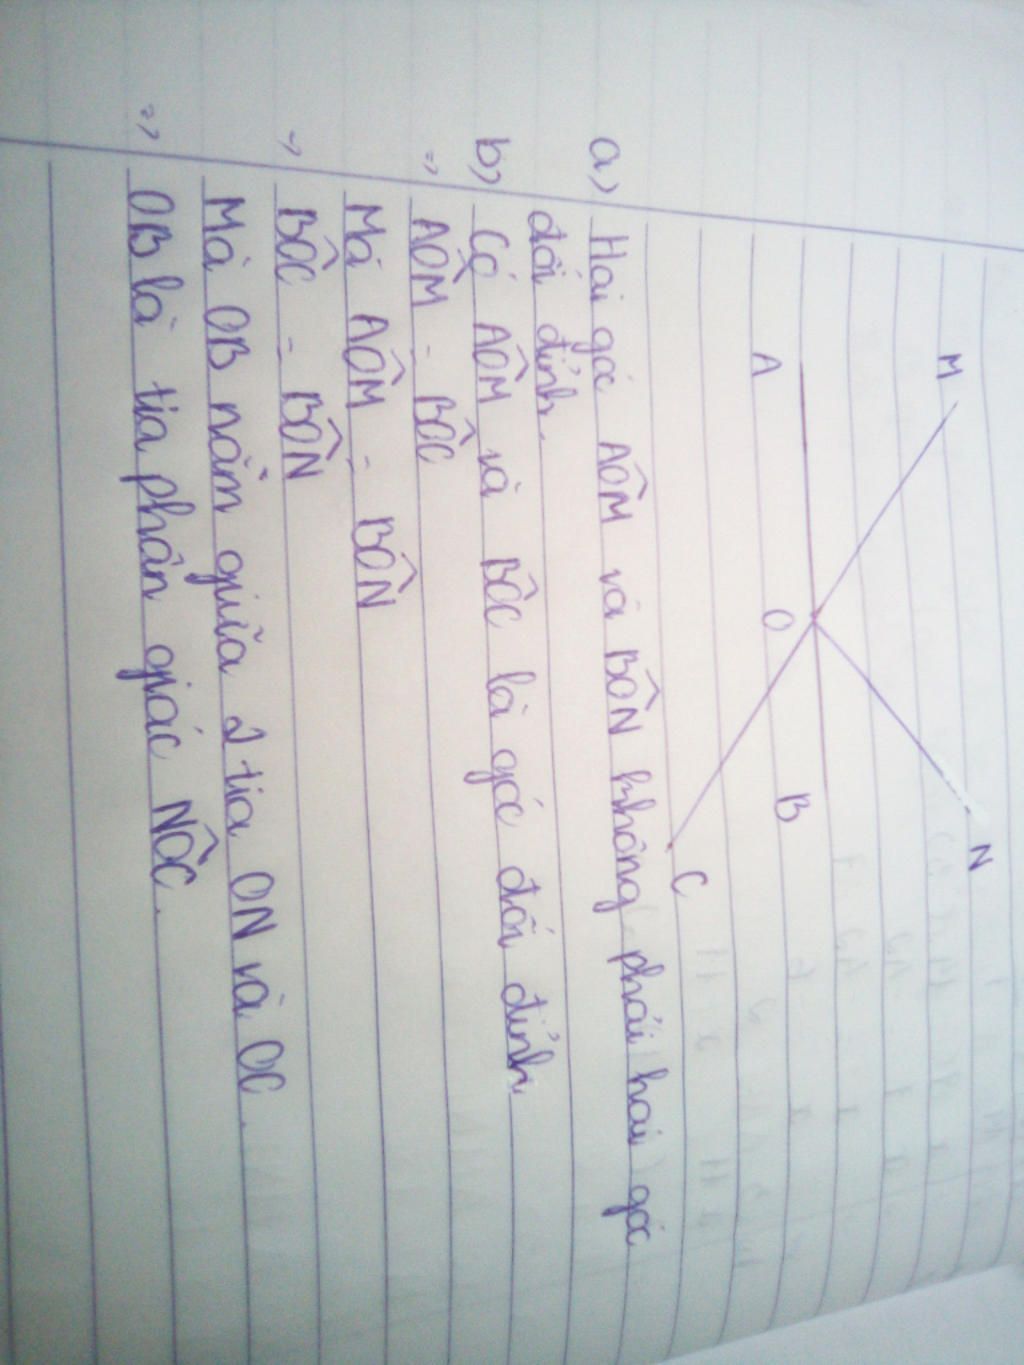 M
N
A
O
B
C
a, Hai góc AÔM và BÔN không phải hai góc
đối đỉnh.
b, Có AÔM và BÔC là góc đối đỉnh
=> AÔM = BÔC
Mà AÔM = BÔN
=> BÔC = BÔN
Mà OB nằm giữa 2 tia ON và OC.
=> OB là tia phân giác NÔC.